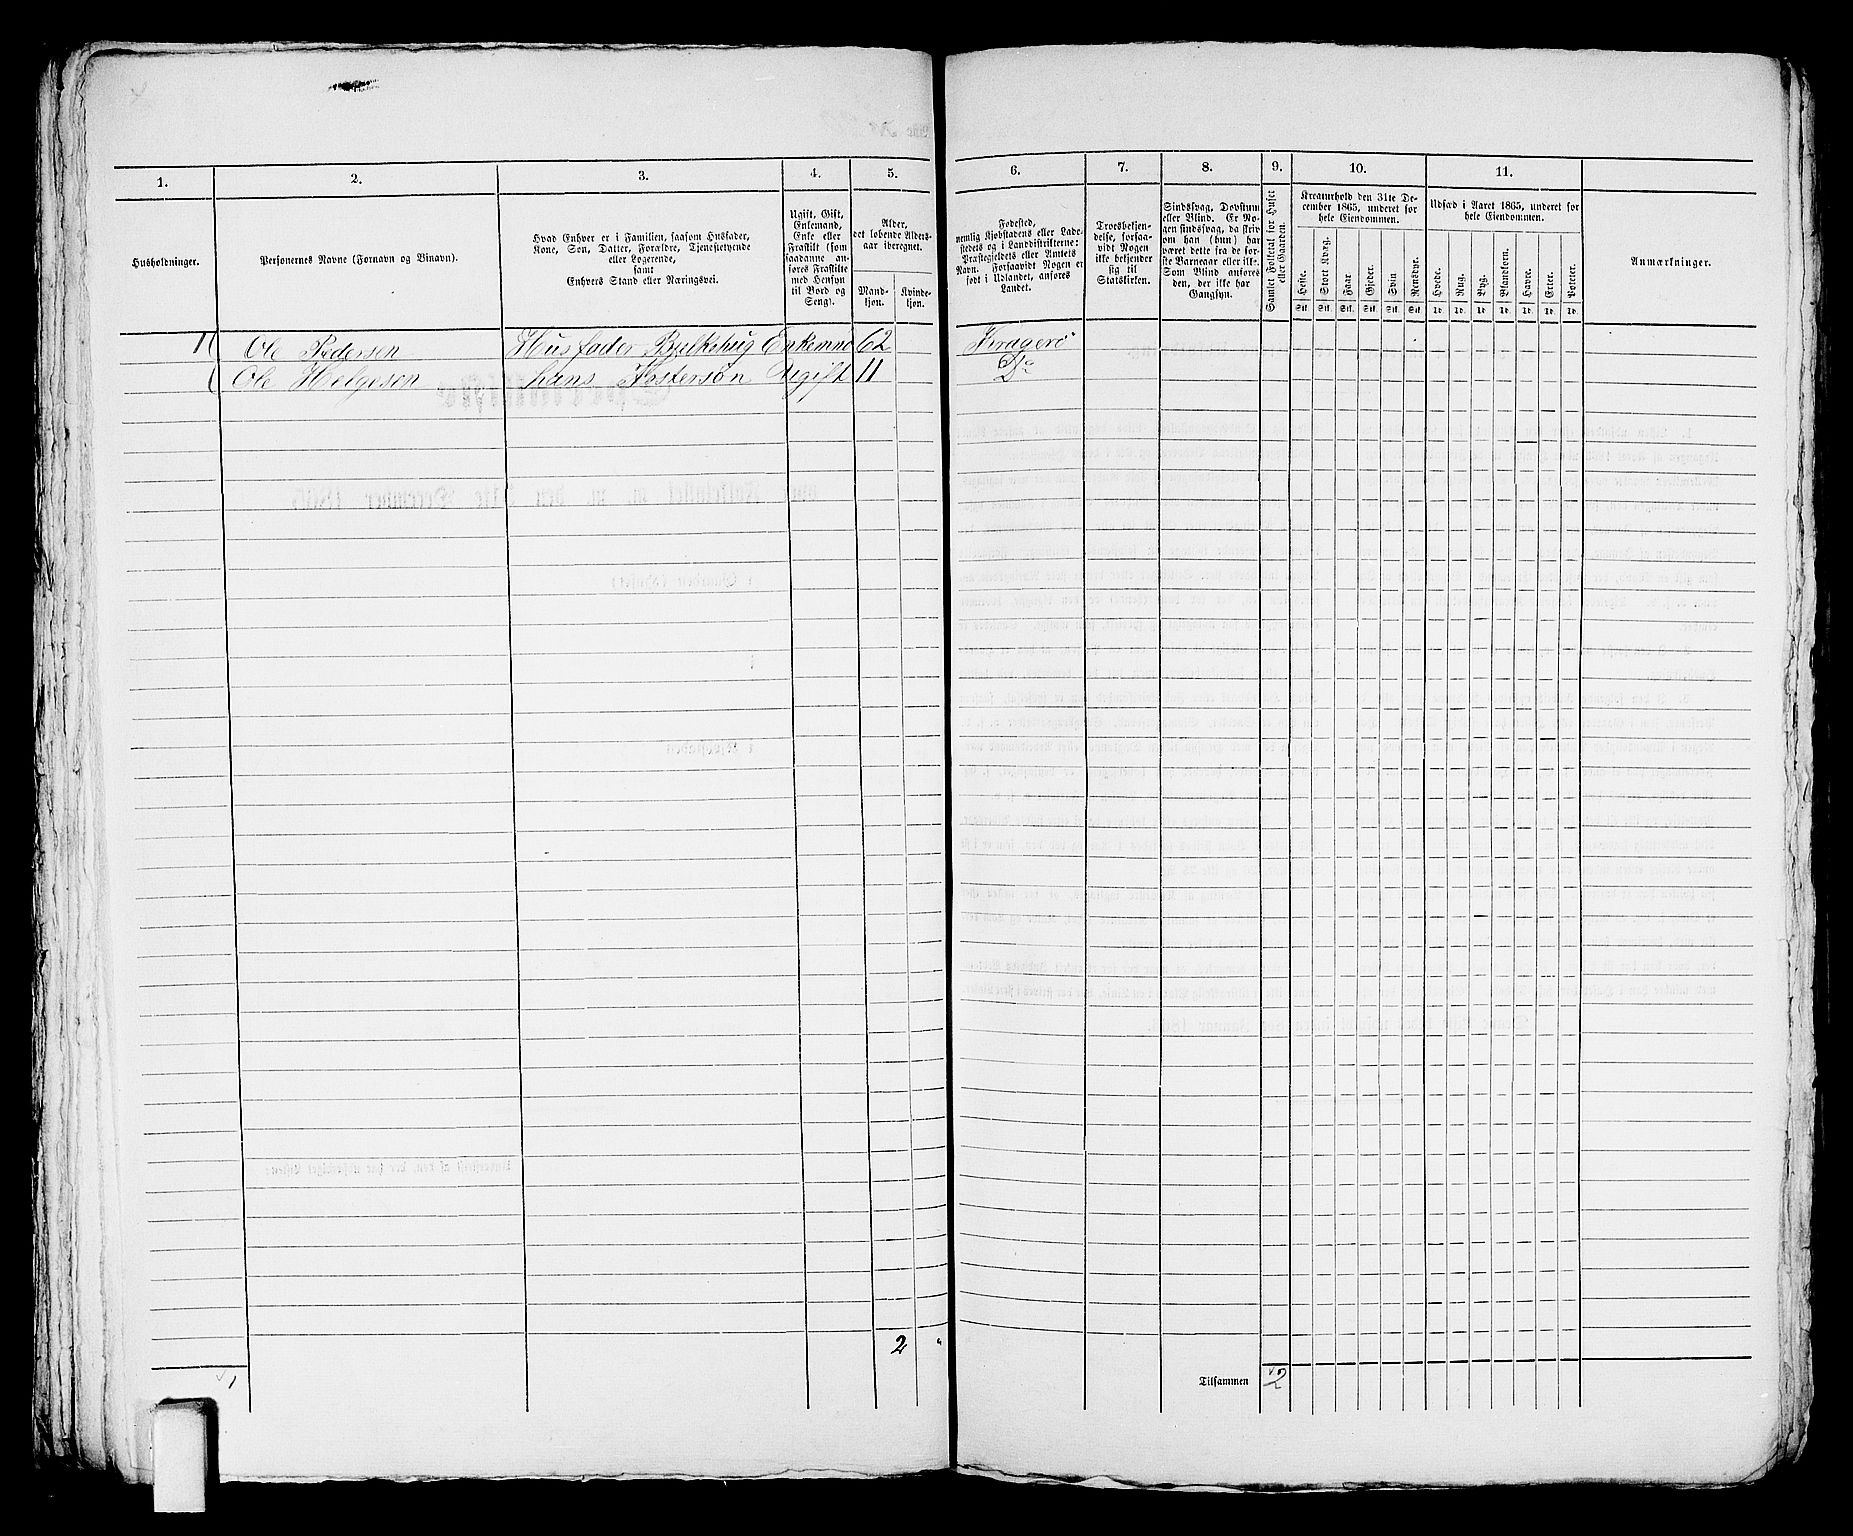 1. 2. 3. 4. 5. 6. 7. 8. 9. 10. 11.
Husholdninger.
Personernes Navne (Fornavn og Binavn).
Hvad Enhver er i Familien, saasom Husfader,
Kone, Søn, Datter, Forældre, Tjenestetyende
eller Logerende,
samt
Enhvers Stand eller Næringsvei.
Ugift, Gift,
Enkemand,
Enke eller
Fraskilt (som
saadanne an-
føres Fraskilte
med Hensyn
til Bord og
Seng).
Alder,
det løbende Alders-
aar iberegnet.
Mand-
kjøn.
Kvinde-
kjøn.
Fødested,
nemlig Kjøbstadens eller Lade-
stedets og i Landdistrikterne:
Præstegjeldets eller Amtets
Navn. Forsaavidt Nogen er
født i Udlandet, anføres
Landet.
Troesbekjen-
delse, forsaa-
vidt Nogen
ikke bekjender
sig til
Statskirken.
Sindssvag, Døvstum
eller Blind. Er No-
gen sindssvag, da skriv
om han (hun) har
været dette fra de før-
ste Barneaar eller ikke.
Som Blind anføres
den, der ikke har
Gangsyn.
Samlet Folketal for Huset
eller Gaarden.
Kreaturhold den 31te De-
cember 1865, underet for
hele Eiendommen.
Heste. Stort Kvæg. Faar Gjeder. Svin Rensdyr.
Stk. Stk. Stk. Stk. Stk. Stk.
Udsæd i Aaret 1865, underet for
hele Eiendommen.
Hvede. Rug. Byg. Blandkorn. Havre. Erter. Poteter.
Td. Td. Td. Td. Td. Td. Td.
Anmærkninger.
Ole Pedersen Husfader Enkemnd 62 Kragerø
Ole Helgesen hans Fostersøn Ugift 11 Do
2 "
1 Tilsammen 2